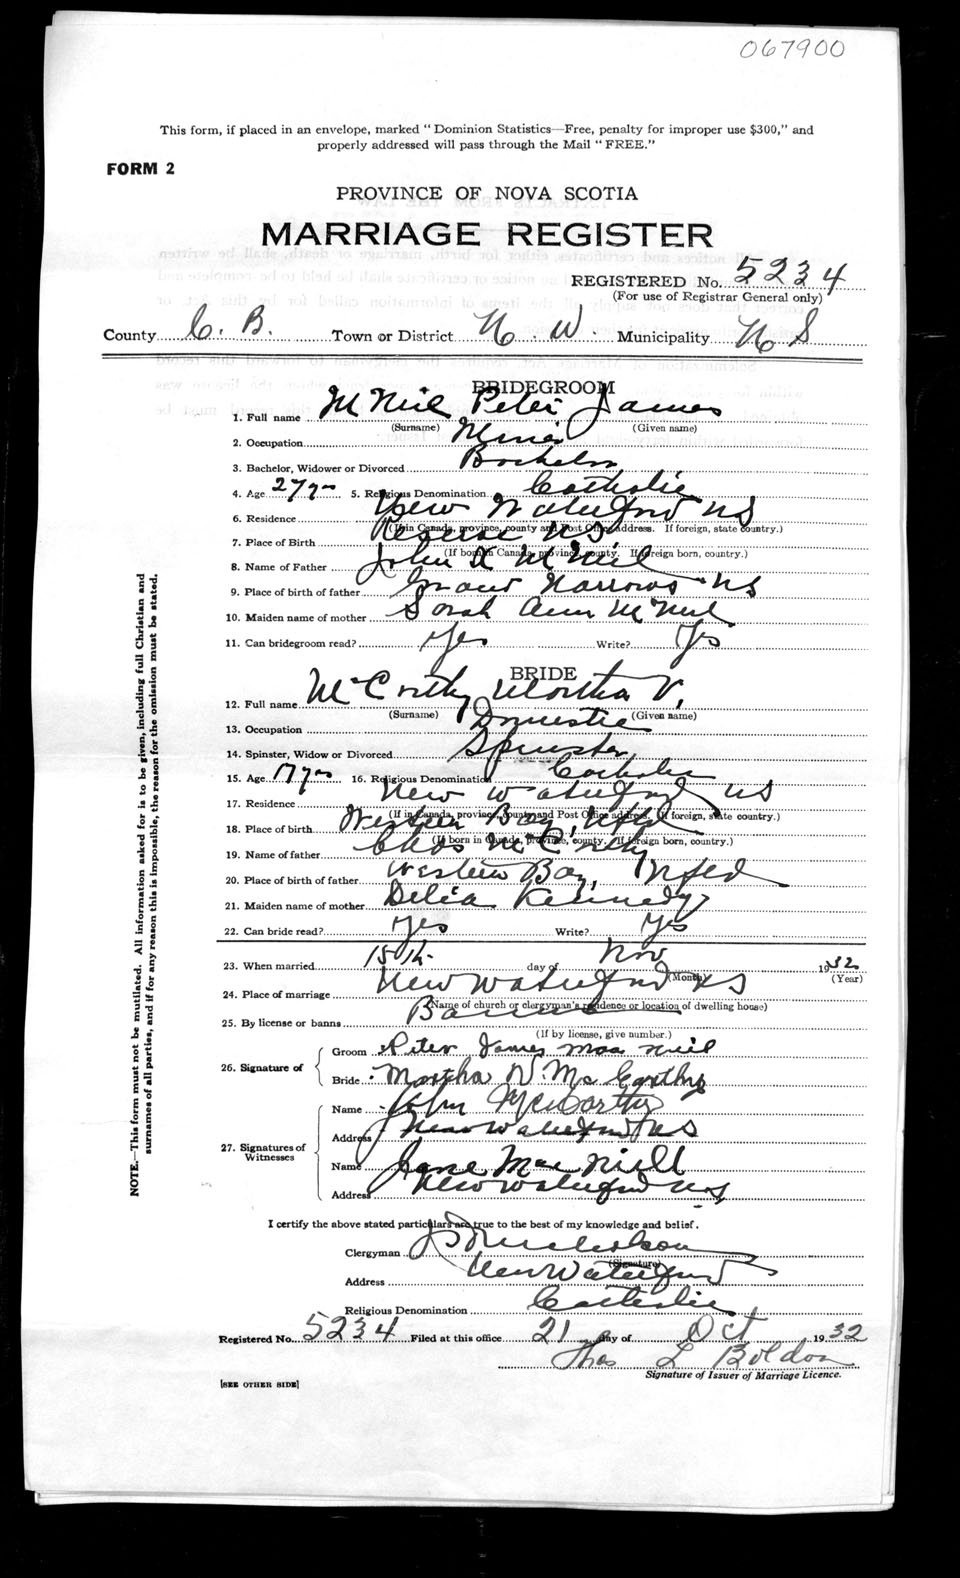 067900
This form, if placed in an envelope, marked "Dominion Statistics—Free, penalty for improper use $300," and
properly addressed will pass through the Mail "FREE."
FORM 2
PROVINCE OF NOVA SCOTIA
MARRIAGE REGISTER
REGISTERED No. 5234
(For use of Registrar General only)
County C. B. Town or District N. W. Municipality N S
BRIDEGROOM
1. Full name McNeil Peter James
(Surname) (Given name)
2. Occupation Miner
3. Bachelor, Widower or Divorced Bachelor
4. Age 27 yrs 5. Religious Denomination Catholic
6. Residence New Waterford NS
(If in Canada, province, county and Post Office address. If foreign, state country.)
7. Place of Birth Reserve NS
(If born in Canada, province, county. If foreign born, country.)
8. Name of Father John A McNeil
9. Place of birth of father Grand Narrows NS
10. Maiden name of mother Sarah Ann McNeil
11. Can bridegroom read? Yes Write? Yes
BRIDE
12. Full name McCarthy Martha V,
(Surname) (Given name)
13. Occupation Domestic
14. Spinster, Widow or Divorced Spinster
15. Age 17 yrs 16. Religious Denomination Catholic
17. Residence New Waterford NS
(If in Canada, province, county and Post Office address. If foreign, state country.)
18. Place of birth Western Bay, Nfld
(If born in Canada, province, county. If foreign born, country.)
19. Name of father Chas McCarthy
20. Place of birth of father Western Bay, Nfld
21. Maiden name of mother Delia Kennedy
22. Can bride read? Yes Write? Yes
23. When married 15th day of Nov 1932
(Month) (Year)
24. Place of marriage New Waterford NS
(Name of church or clergyman's residence or location of dwelling house)
25. By license or banns Banns
(If by license, give number.)
26. Signature of
Groom Peter James Mac Neil
Bride Martha V. Mc Carthy
27. Signatures of Witnesses
Name John McCarthy
Address New Waterford NS
Name Jane MacNeill
Address New Waterford NS
I certify the above stated particulars are true to the best of my knowledge and belief.
Clergyman
(Signature)
Address New Waterford
Religious Denomination Catholic
Registered No. 5234 Filed at this office 21 day of Oct 1932
Thos L Boldon
Signature of Issuer of Marriage Licence.
[SEE OTHER SIDE]
NOTE.—This form must not be mutilated. All information asked for is to be given, including full Christian and
surnames of all parties, and if for any reason this is impossible, the reason for the omission must be stated.